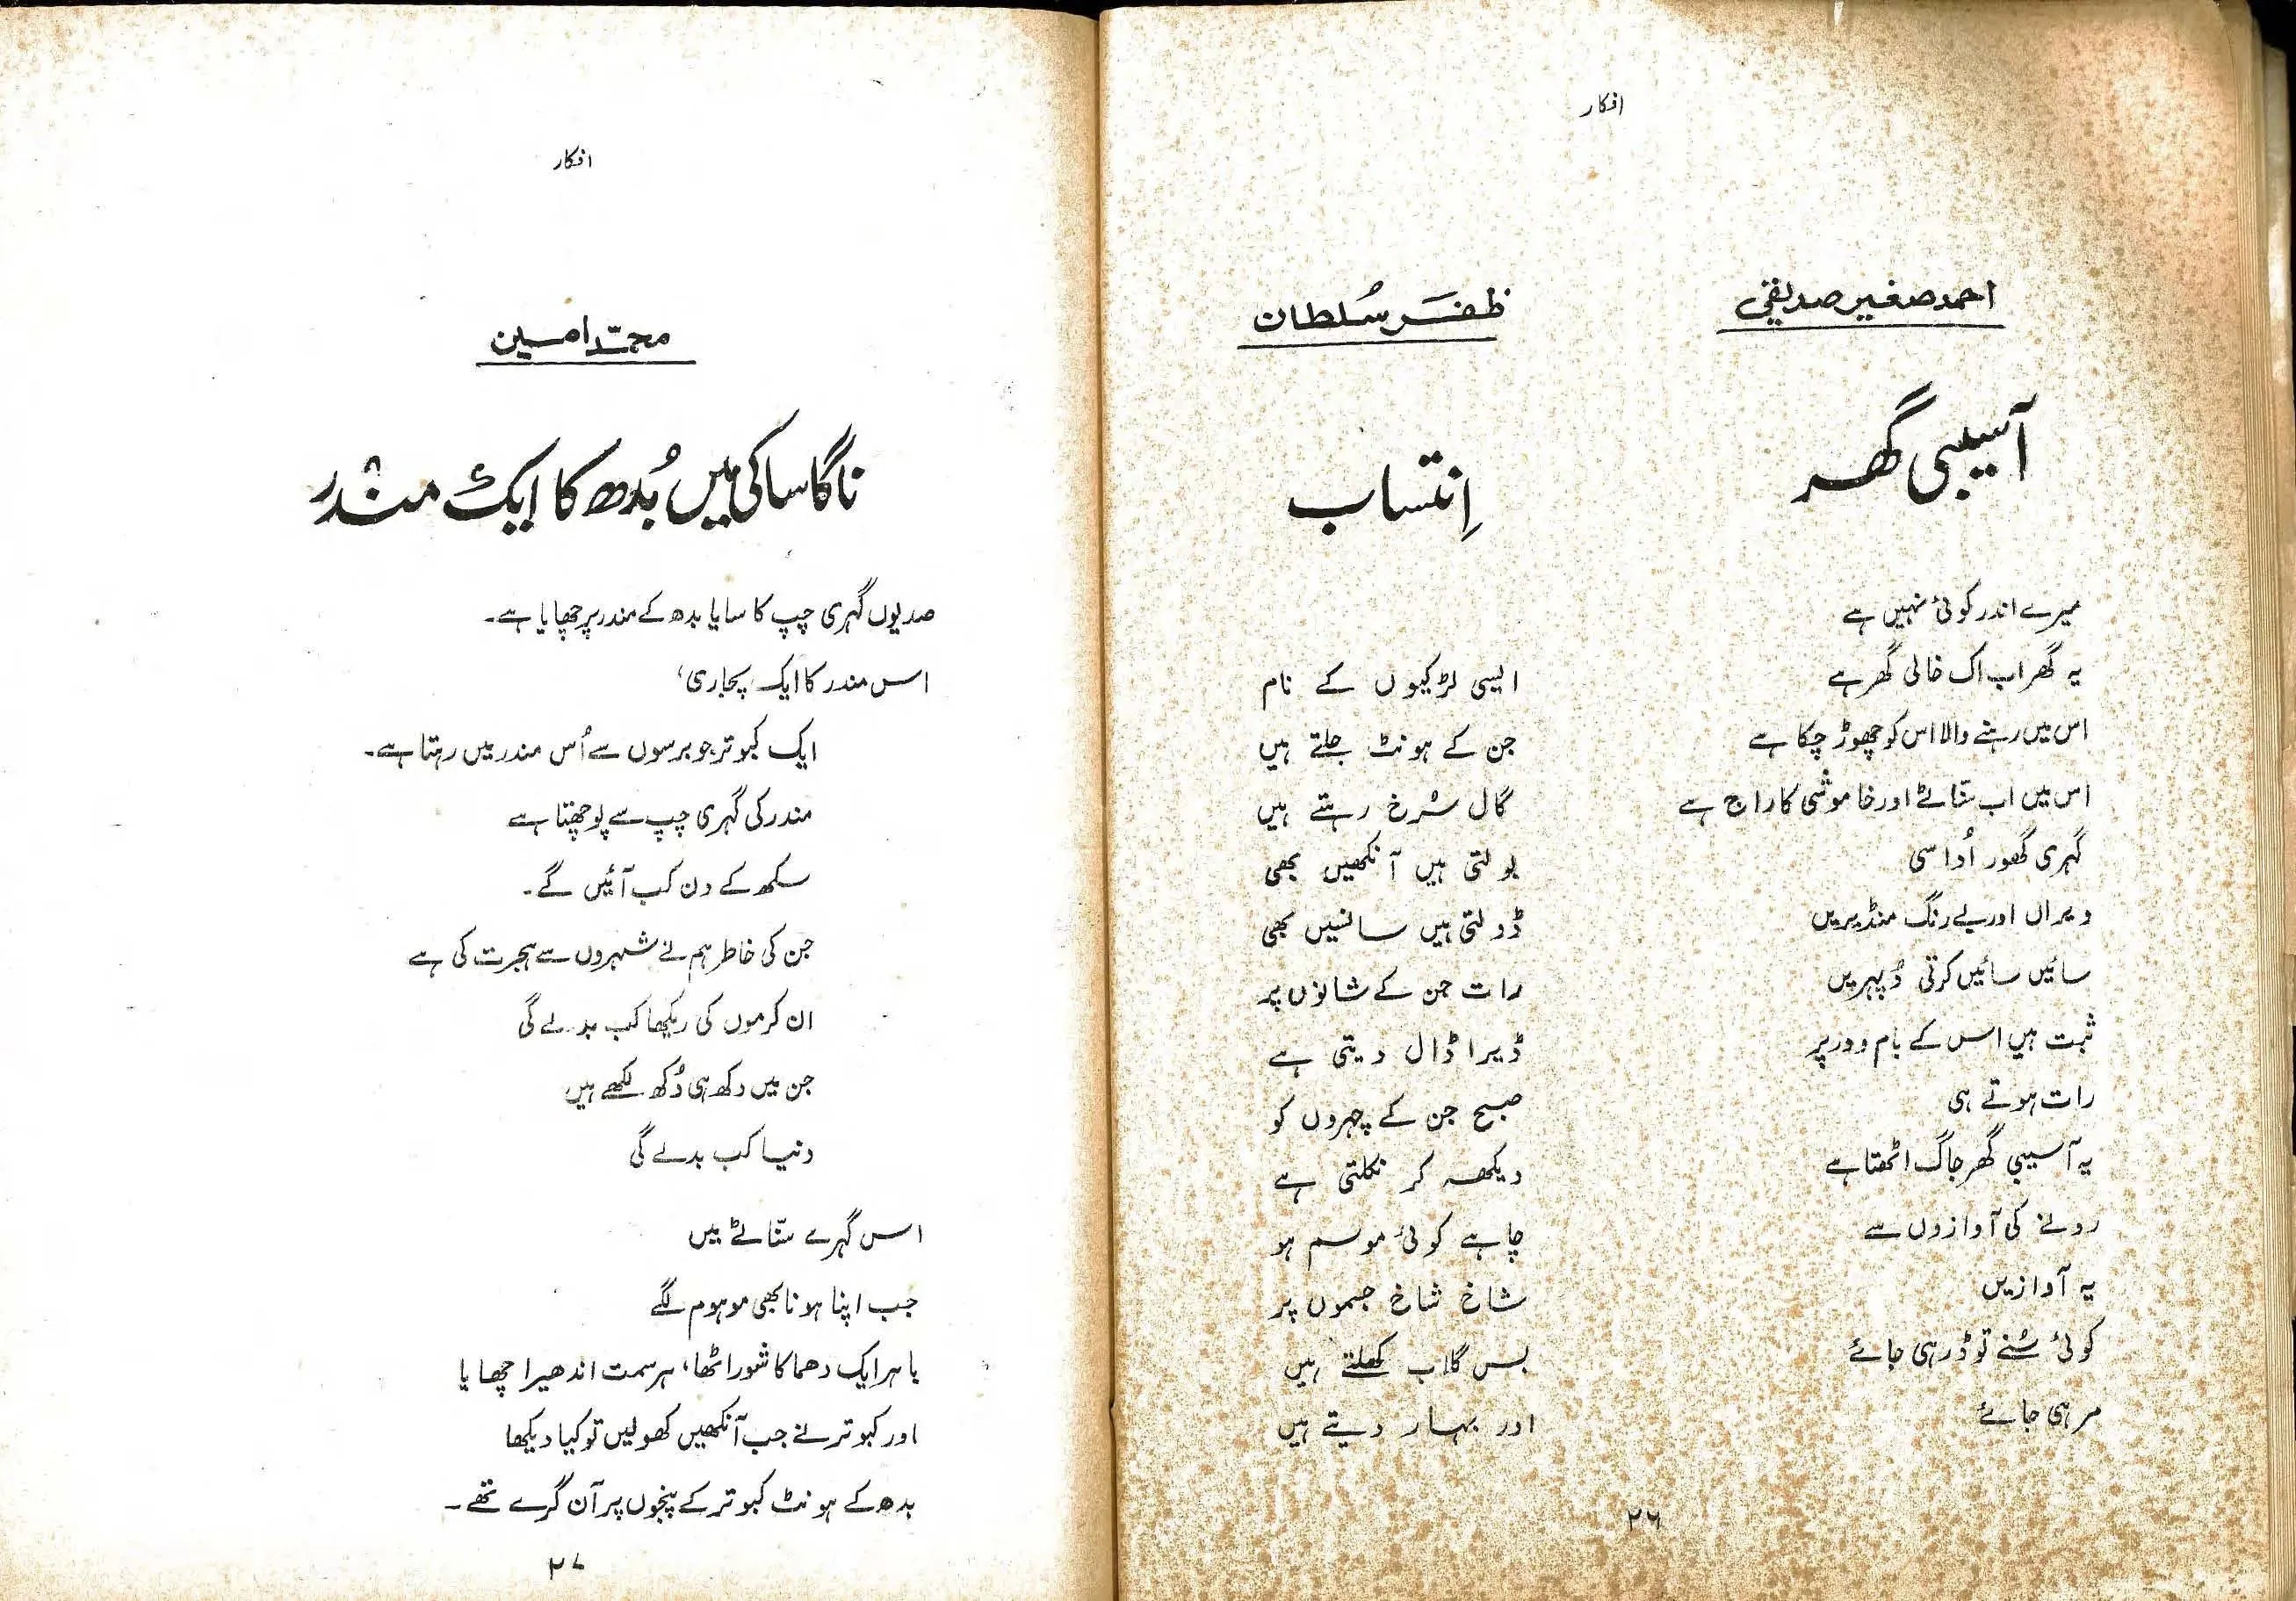 افکار
احمد صغیر صدیقی
آسیبی گھر
میرے اندر کوئی نہیں ہے
یہ گھر اب اک خالی گھر ہے
اس میں رہنے والا اس کو چھوڑ چکا ہے
اس میں اب سنّاٹے اور خاموشی کا راج ہے
گہری گھور اُداسی
ویراں اور بے رنگ منڈیریں
سائیں سائیں کرتی دُپہریں
ثبت ہیں اس کے بام و در پر
رات ہوتے ہی
یہ آسیبی گھر جاگ اٹھتا ہے
رونے کی آوازوں سے
یہ آوازیں
کوئی سُنے تو ڈر ہی جائے
مر ہی جائے
ظفَر سُلطان
اِنتساب
ایسی لڑکیوں کے نام
جن کے ہونٹ جلتے ہیں
گال سُرخ رہتے ہیں
بولتی ہیں آنکھیں بھی
ڈولتی ہیں سانسیں بھی
رات جن کے شانوں پر
ڈیرا ڈال دیتی ہے
صبح جن کے چہروں کو
دیکھ کر نکلتی ہے
چاہے کوئی موسم ہو
شاخ شاخ جسموں پر
بس گلاب کھلتے ہیں
اور بہار دیتے ہیں
۲۶
افکار
محمّد امین
ناگاساکی میں بُدھ کا ایک مندر
صدیوں گہری چپ کا سایا بدھ کے مندر پر چھایا ہے۔
اس مندر کا ایک پجاری،
ایک کبوتر جو برسوں سے اُس مندر میں رہتا ہے۔
مندر کی گہری چپ سے پوچھتا ہے
سکھ کے دن کب آئیں گے۔
جن کی خاطر ہم نے شہروں سے ہجرت کی ہے
ان کرموں کی ریکھا کب بدلے گی
جن میں دکھ ہی دُکھ لکھے ہیں
دنیا کب بدلے گی
اس گہرے سنّاٹے میں
جب اپنا ہونا بھی موہوم لگے
باہر ایک دھماکا شور اٹھا، ہر سمت اندھیرا چھایا
اور کبوتر نے جب آنکھیں کھولیں تو کیا دیکھا
بدھ کے ہونٹ کبوتر کے پنجوں پر آن گرے تھے۔
۲۷